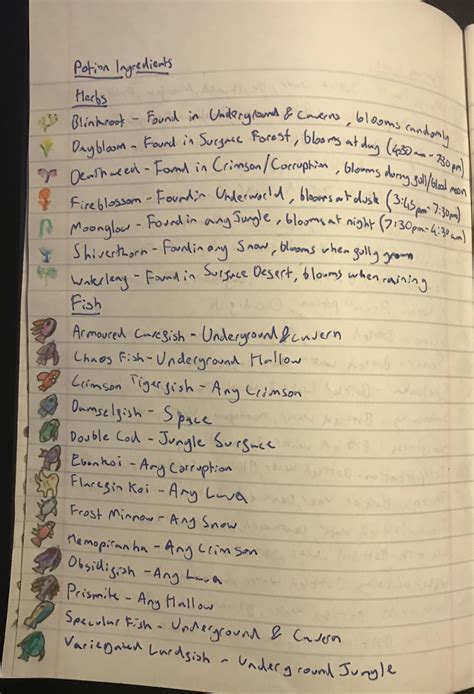 Potion Ingredients
Herbs
Blinkroot - Found in Underground & Cavern, blooms randomly
Daybloom - Found in Surface Forest, blooms at day (4:30am - 7:30pm)
Deathweed - Found in Crimson/Corruption, blooms during full/blood moon
Fireblossom - Found in Underworld, blooms at dusk (3:45pm - 7:30pm)
Moonglow - Found in any Jungle, blooms at night (7:30pm - 4:30am)
Shiverthorn - Found in any Snow, blooms when fully grown
Waterleaf - Found in Surface Desert, blooms when raining
Fish
Armoured Cavefish - Underground & Cavern
Chaos Fish - Underground Hallow
Crimson Tigerfish - Any Crimson
Damselfish - Space
Double Cod - Jungle Surface
Ebonkoi - Any Corruption
Flarefin Koi - Any Lava
Frost Minnow - Any Snow
Hemopiranha - Any Crimson
Obsidifish - Any Lava
Prismite - Any Hallow
Specular Fish - Underground & Cavern
Variegated Lardfish - Underground Jungle